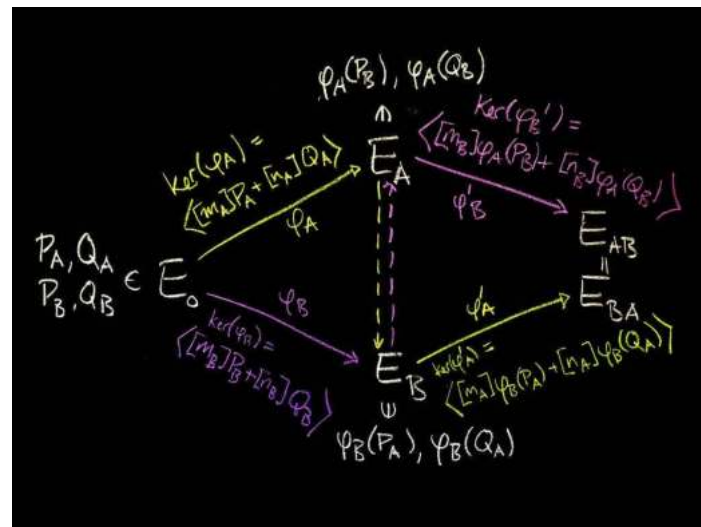 φ_A(P_B), φ_A(Q_B)
ker(φ_A) =
⟨[m_A]P_A + [n_A]Q_A⟩
φ_A
E_A
ker(φ_B') =
⟨[m_B]φ_A(P_B) + [n_B]φ_A(Q_B)⟩
φ'_B
P_A, Q_A
P_B, Q_B
∈ E_0
E_AB
=
E_BA
φ_B
ker(φ_B) =
⟨[m_B]P_B + [n_B]Q_B⟩
E_B
φ'_A
ker(φ'_A) =
⟨[m_A]φ_B(P_A) + [n_A]φ_B(Q_A)⟩
φ_B(P_A), φ_B(Q_A)